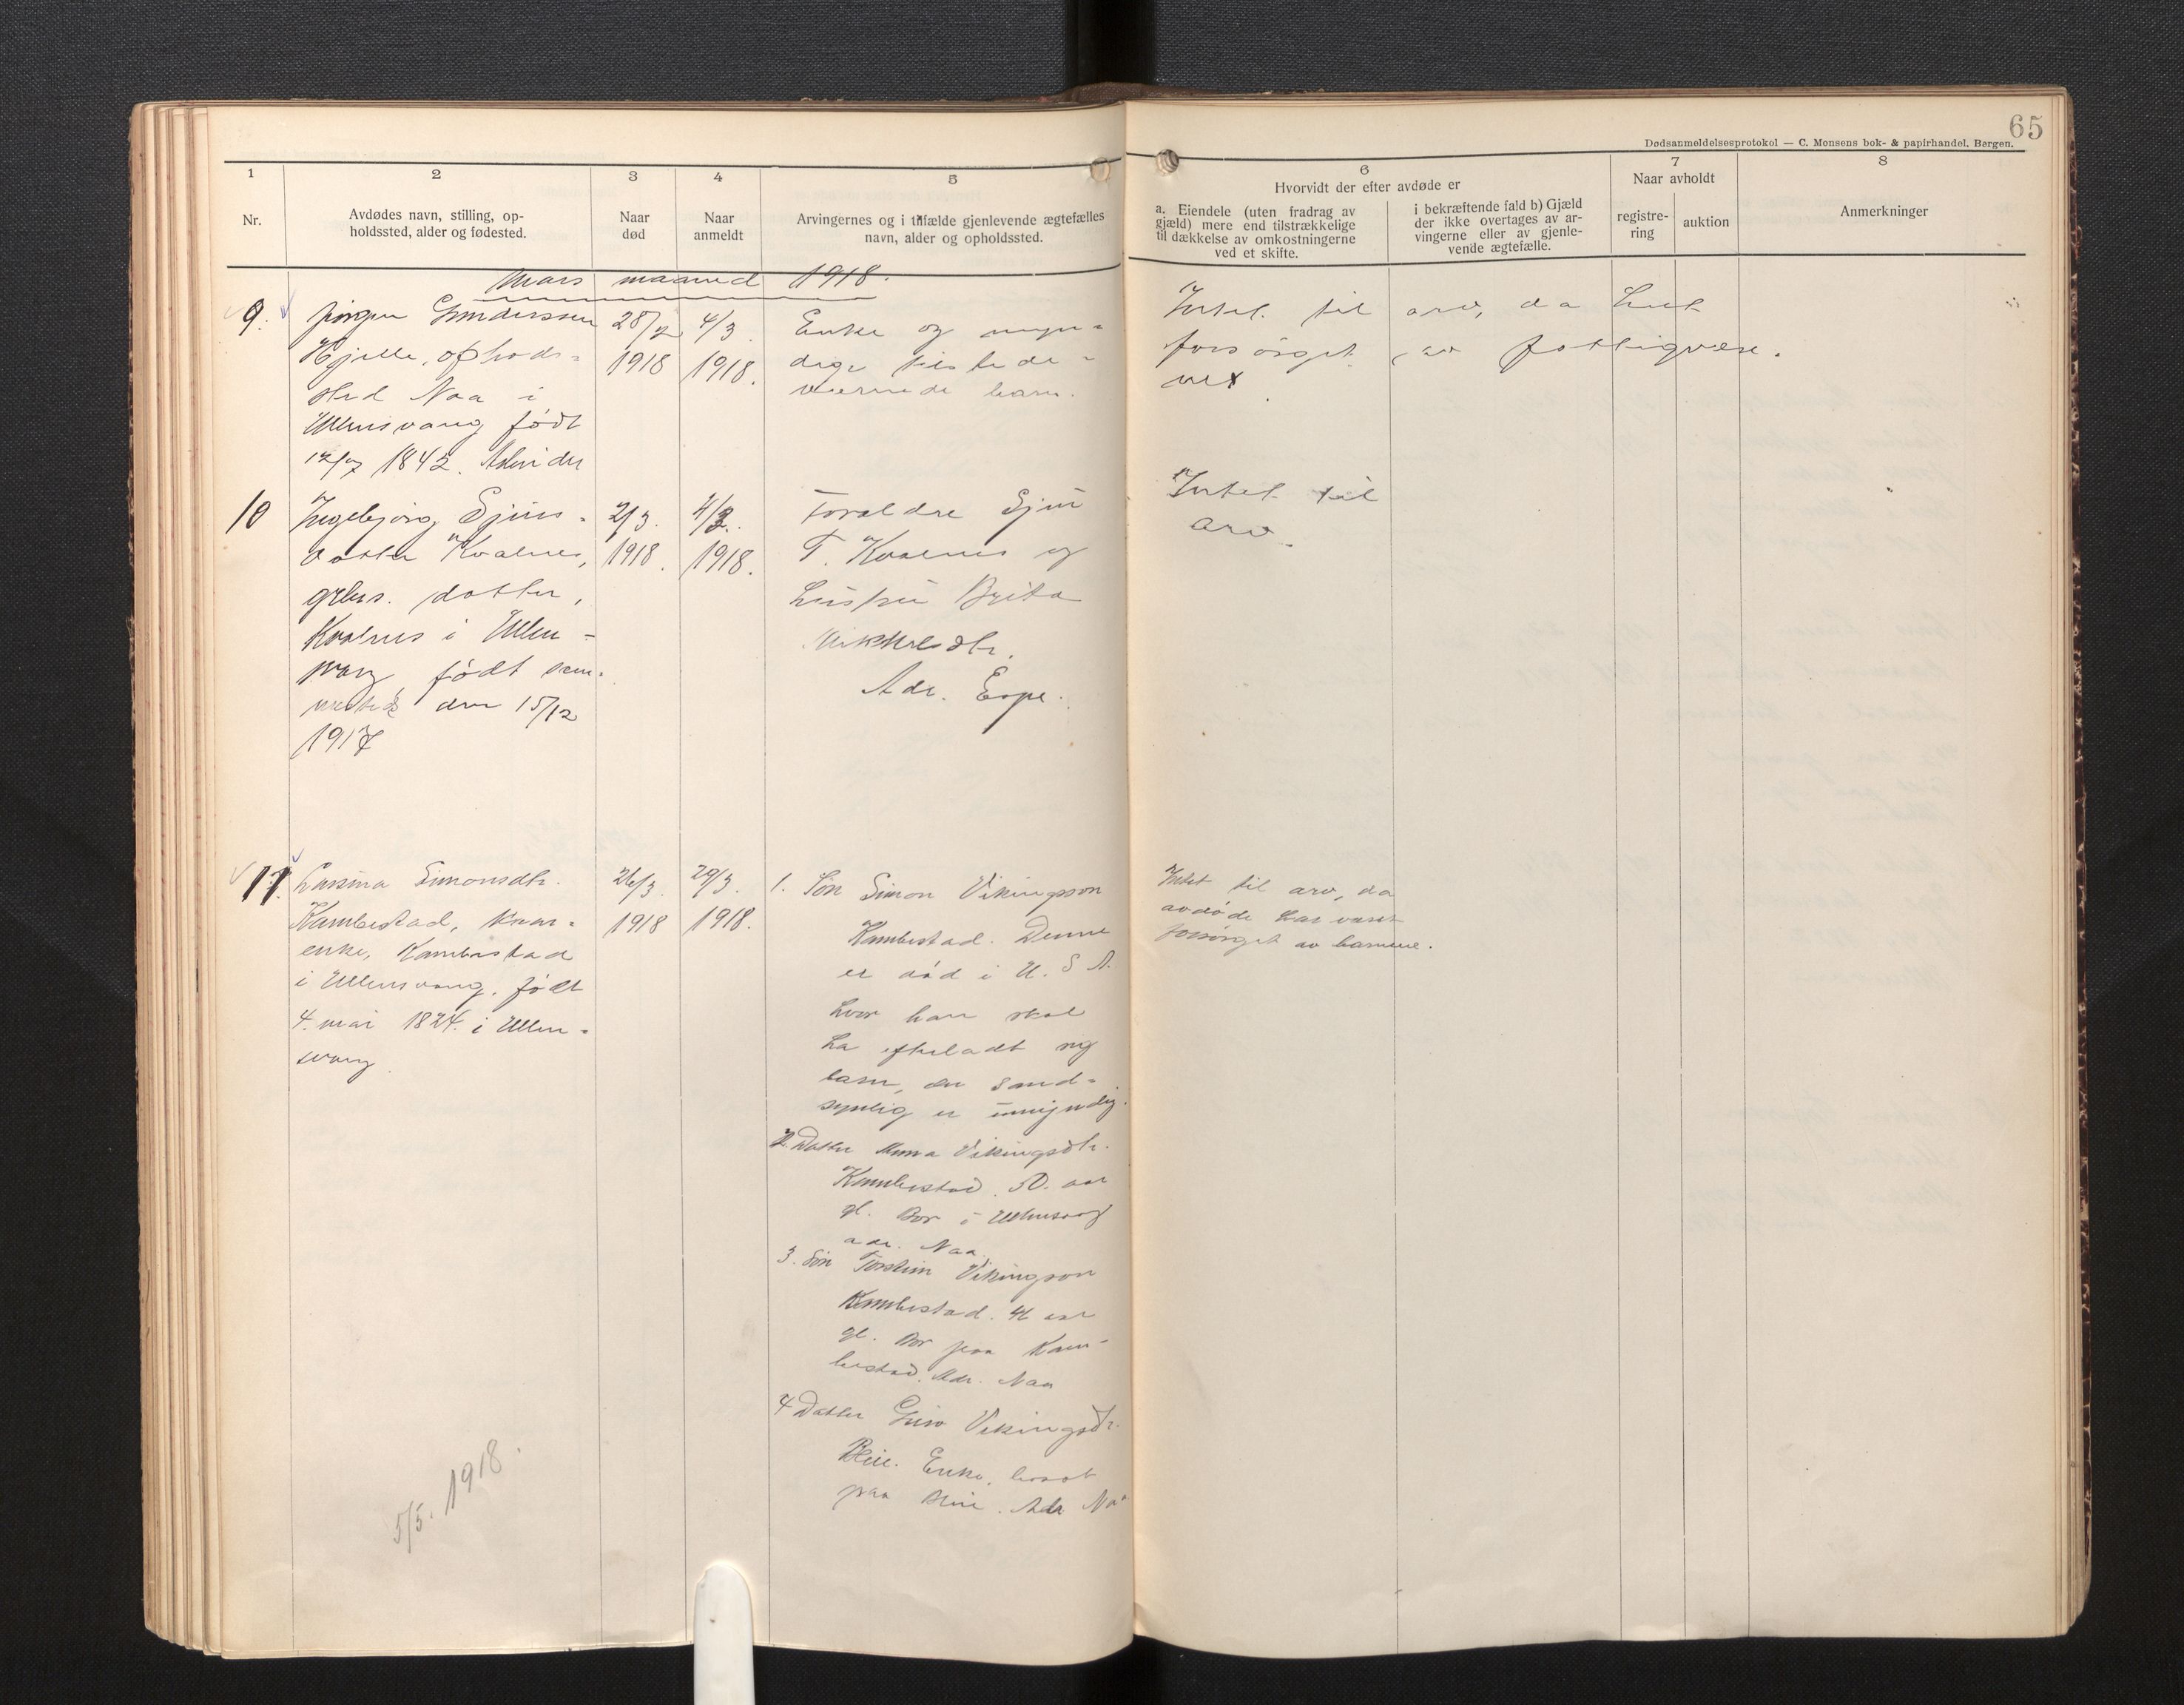 65
Dødsanmeldelsesprotokol — C. Monsens bok- & papirhandel, Bergen.
1
Nr.
2
Avdødes navn, stilling, op-
holdssted, alder og fødested.
3
Naar
død
4
Naar
anmeldt
5
Arvingernes og i tilfælde gjenlevende ægtefælles
navn, alder og opholdssted.
6
Hvorvidt der efter avdøde er
a. Eiendele (uten fradrag av
gjæld) mere end tilstrækkelige
til dækkelse av omkostningerne
ved et skifte.
i bekræftende fald b) Gjæld
der ikke overtages av ar-
vingerne eller av gjenle-
vende ægtefælle.
7
Naar avholdt
registre-
ring
auktion
8
Anmerkninger
Mars maaned 1918.
9.
Jørgen Gunderssen
Hjelle, opholds-
sted Naa i
Ullensvang født
12/7 1842. Arbeider
28/2
1918
4/3.
1918.
Enke og myn-
dige tilstede-
værende barn.
Intet til arv, da
forsørget av fattigvæse.
net
10
Ingebjørg Sjurs-
datter Kvalnes,
grbrs. datter,
Kvalnes i Ullens-
vang født sam-
mesteds den 15/12
1917
2/3.
1918.
4/3.
1918.
Foraldre Sjur
T. Kvalnes og
hustru Brita
Adr. Espe.
Intet til
arv.
11.
Larsina Simonsdtr.
Kambestad, kaar-
enke, Kambestad
i Ullensvang. født
4. mai 1824. i Ullens-
vang
26/3.
1918
29/3.
1918.
1. Søn Simon Vikingsson
Kambestad. Denne
er død i U. S A.
hvor han skal
ha efterladt sig
barn, der sand-
synlig er umyndig.
2. Datter Anna Vikingsdtr.
Kambestad. 50. aar
gl. Bor i Ullensvang
adr. Naa.
3. Søn Torstein Vikingson
Kambestad. 46 aar
gl. Bor paa Kam-
bestad. Adr. Naa
4 Datter Guro Vikingsdtr.
Bleie. Enke, bosat
paa Bleie. Adr Naa
Intet til arv, da
avdøde har været
forsørget av barnene.
5/5. 1918.